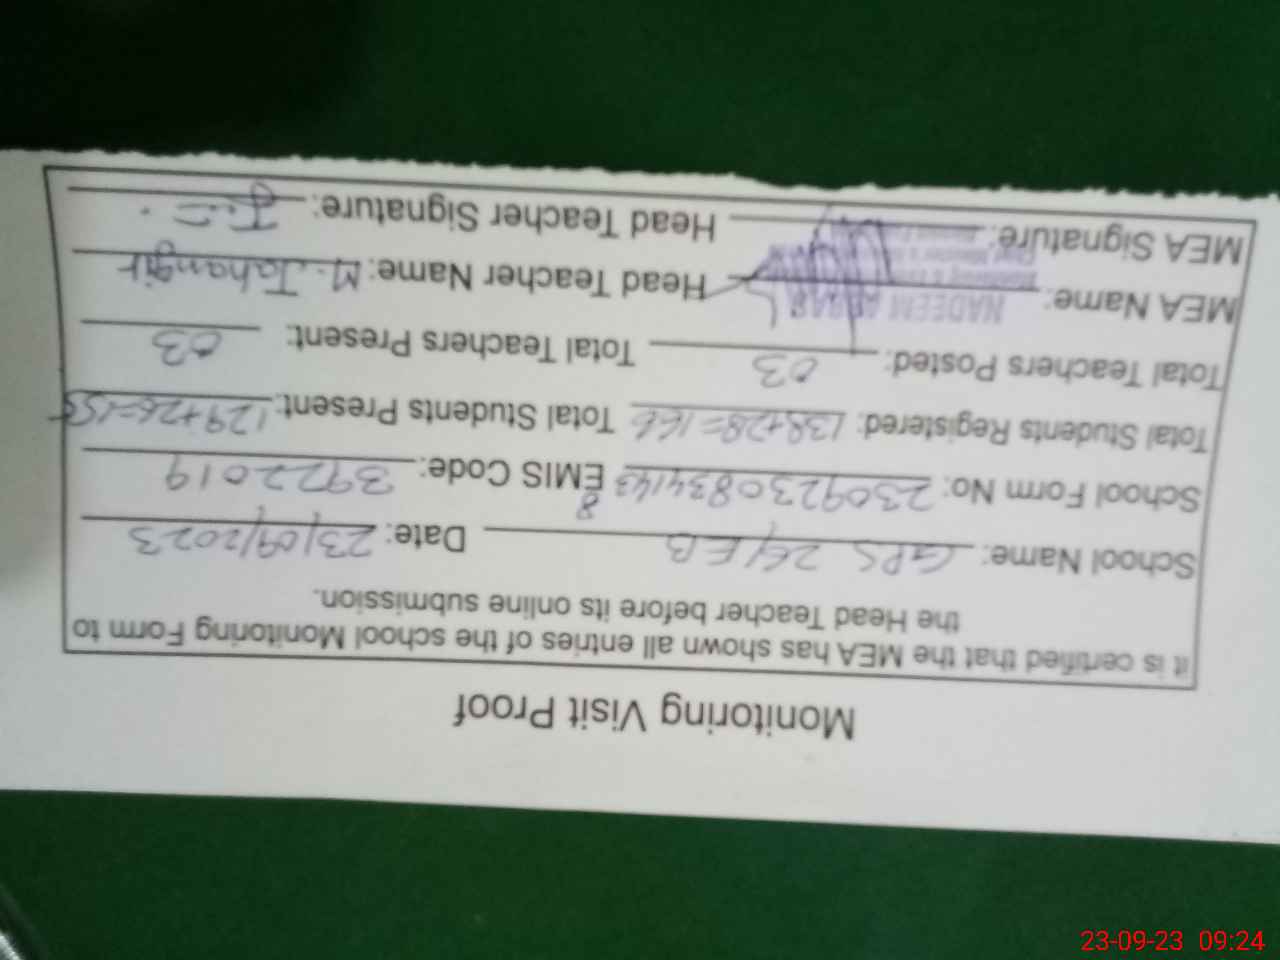 Monitoring Visit Proof
it is certified that the MEA has shown all entries of the school Monitoring Form to
the Head Teacher before its online submission.
School Name: GPS 29/EB Date: 23/09/2023
School Form No: 2309230834143 8 EMIS Code: 3922019
Total Students Registered: 138+28=166 Total Students Present: 129+26=155
Total Teachers Posted: 03 Total Teachers Present: 03
MEA Name: NADEEM Head Teacher Name: M. Jahangir
MEA Signature: Head Teacher Signature:
23-09-23 09:24